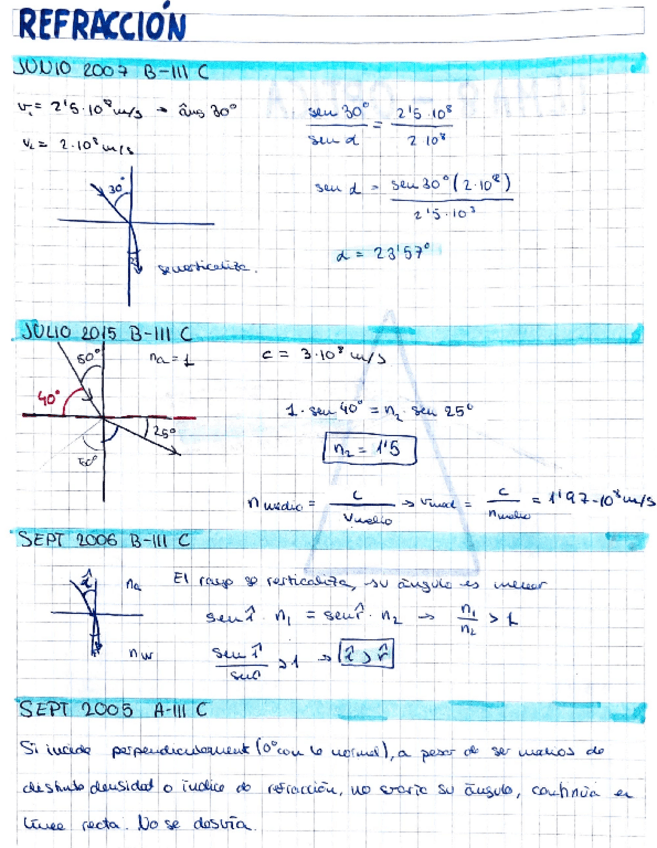 REFRACCIÓN
JUNIO 2007 B-III C
v₁= 2'5·10⁸ m/s → âng 30°
sen 30° / sen α = 2'5·10⁸ / 2·10⁸
v₂= 2·10⁸ m/s
30°
sen α = sen 30° (2·10⁸) / 2'5·10⁸
α = 23'57°
se verticaliza.
JULIO 2015 B-III C
50°
nₐ = 1
c = 3·10⁸ m/s
40°
1· sen 40° = n₂ sen 25°
25°
n₂ = 1'5
50°
n medio = c / v medio → v med = c / n medio = 1'97·10⁸ m/s
SEPT 2006 B-III C
î
na
El rayo se verticaliza, su ángulo es menor
sen î · n₁ = sen r̂ · n₂ → n₁ / n₂ > 1
nw
sen î / sen r̂ > 1 → î > r̂
SEPT 2005 A-III C
Si incide perpendicularment (0° con la normal), a pesar de ser medios de
distinta densidad o índice de refracción, no varía su ángulo, continúa en
línea recta. No se desvía.